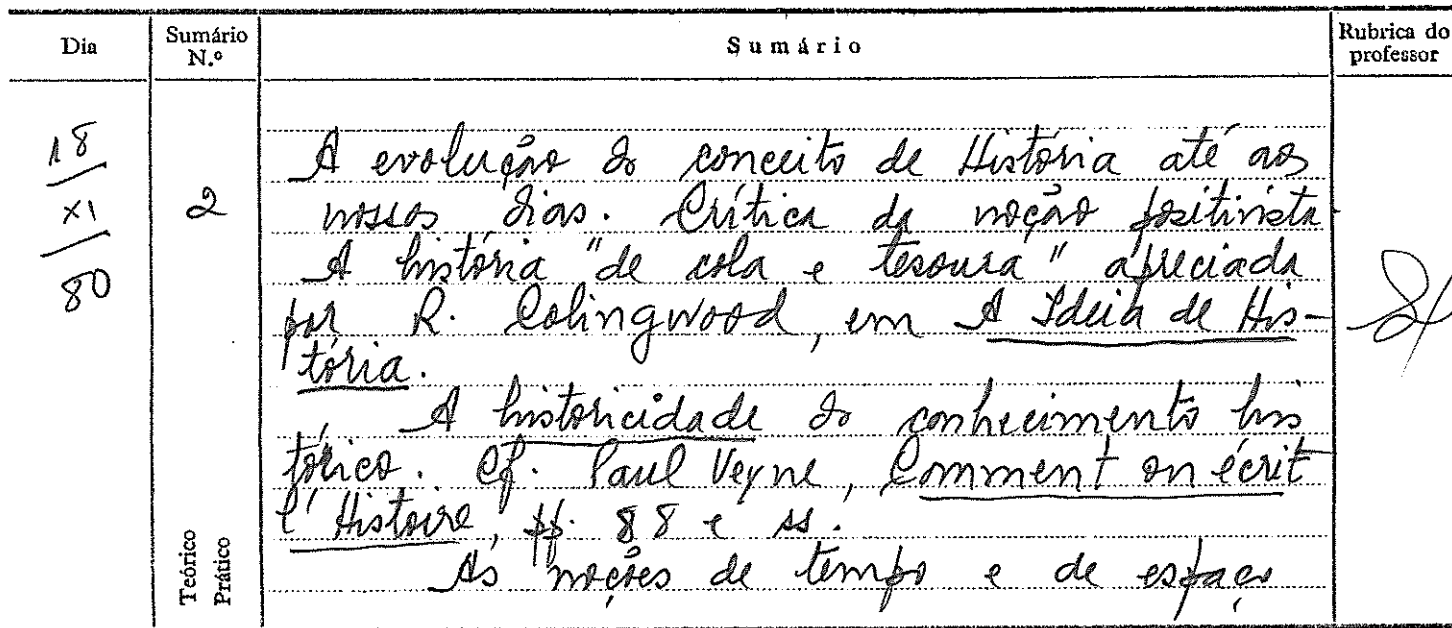 Dia
Sumário N.º
Sumário
Rubrica do professor
18
XI
80
2
A evolução do conceito de História até aos
nossos dias. Crítica da noção positivista.
A história "de cola e tesoura" apreciada
por R. Colingwood, em A Ideia de His-
tória.
A historicidade do conhecimento his
tórico. Cf. Paul Veyne, Comment on écrit
l'Histoire, pp. 88 e ss.
As noções de tempo e de espaço
Teórico
Prático